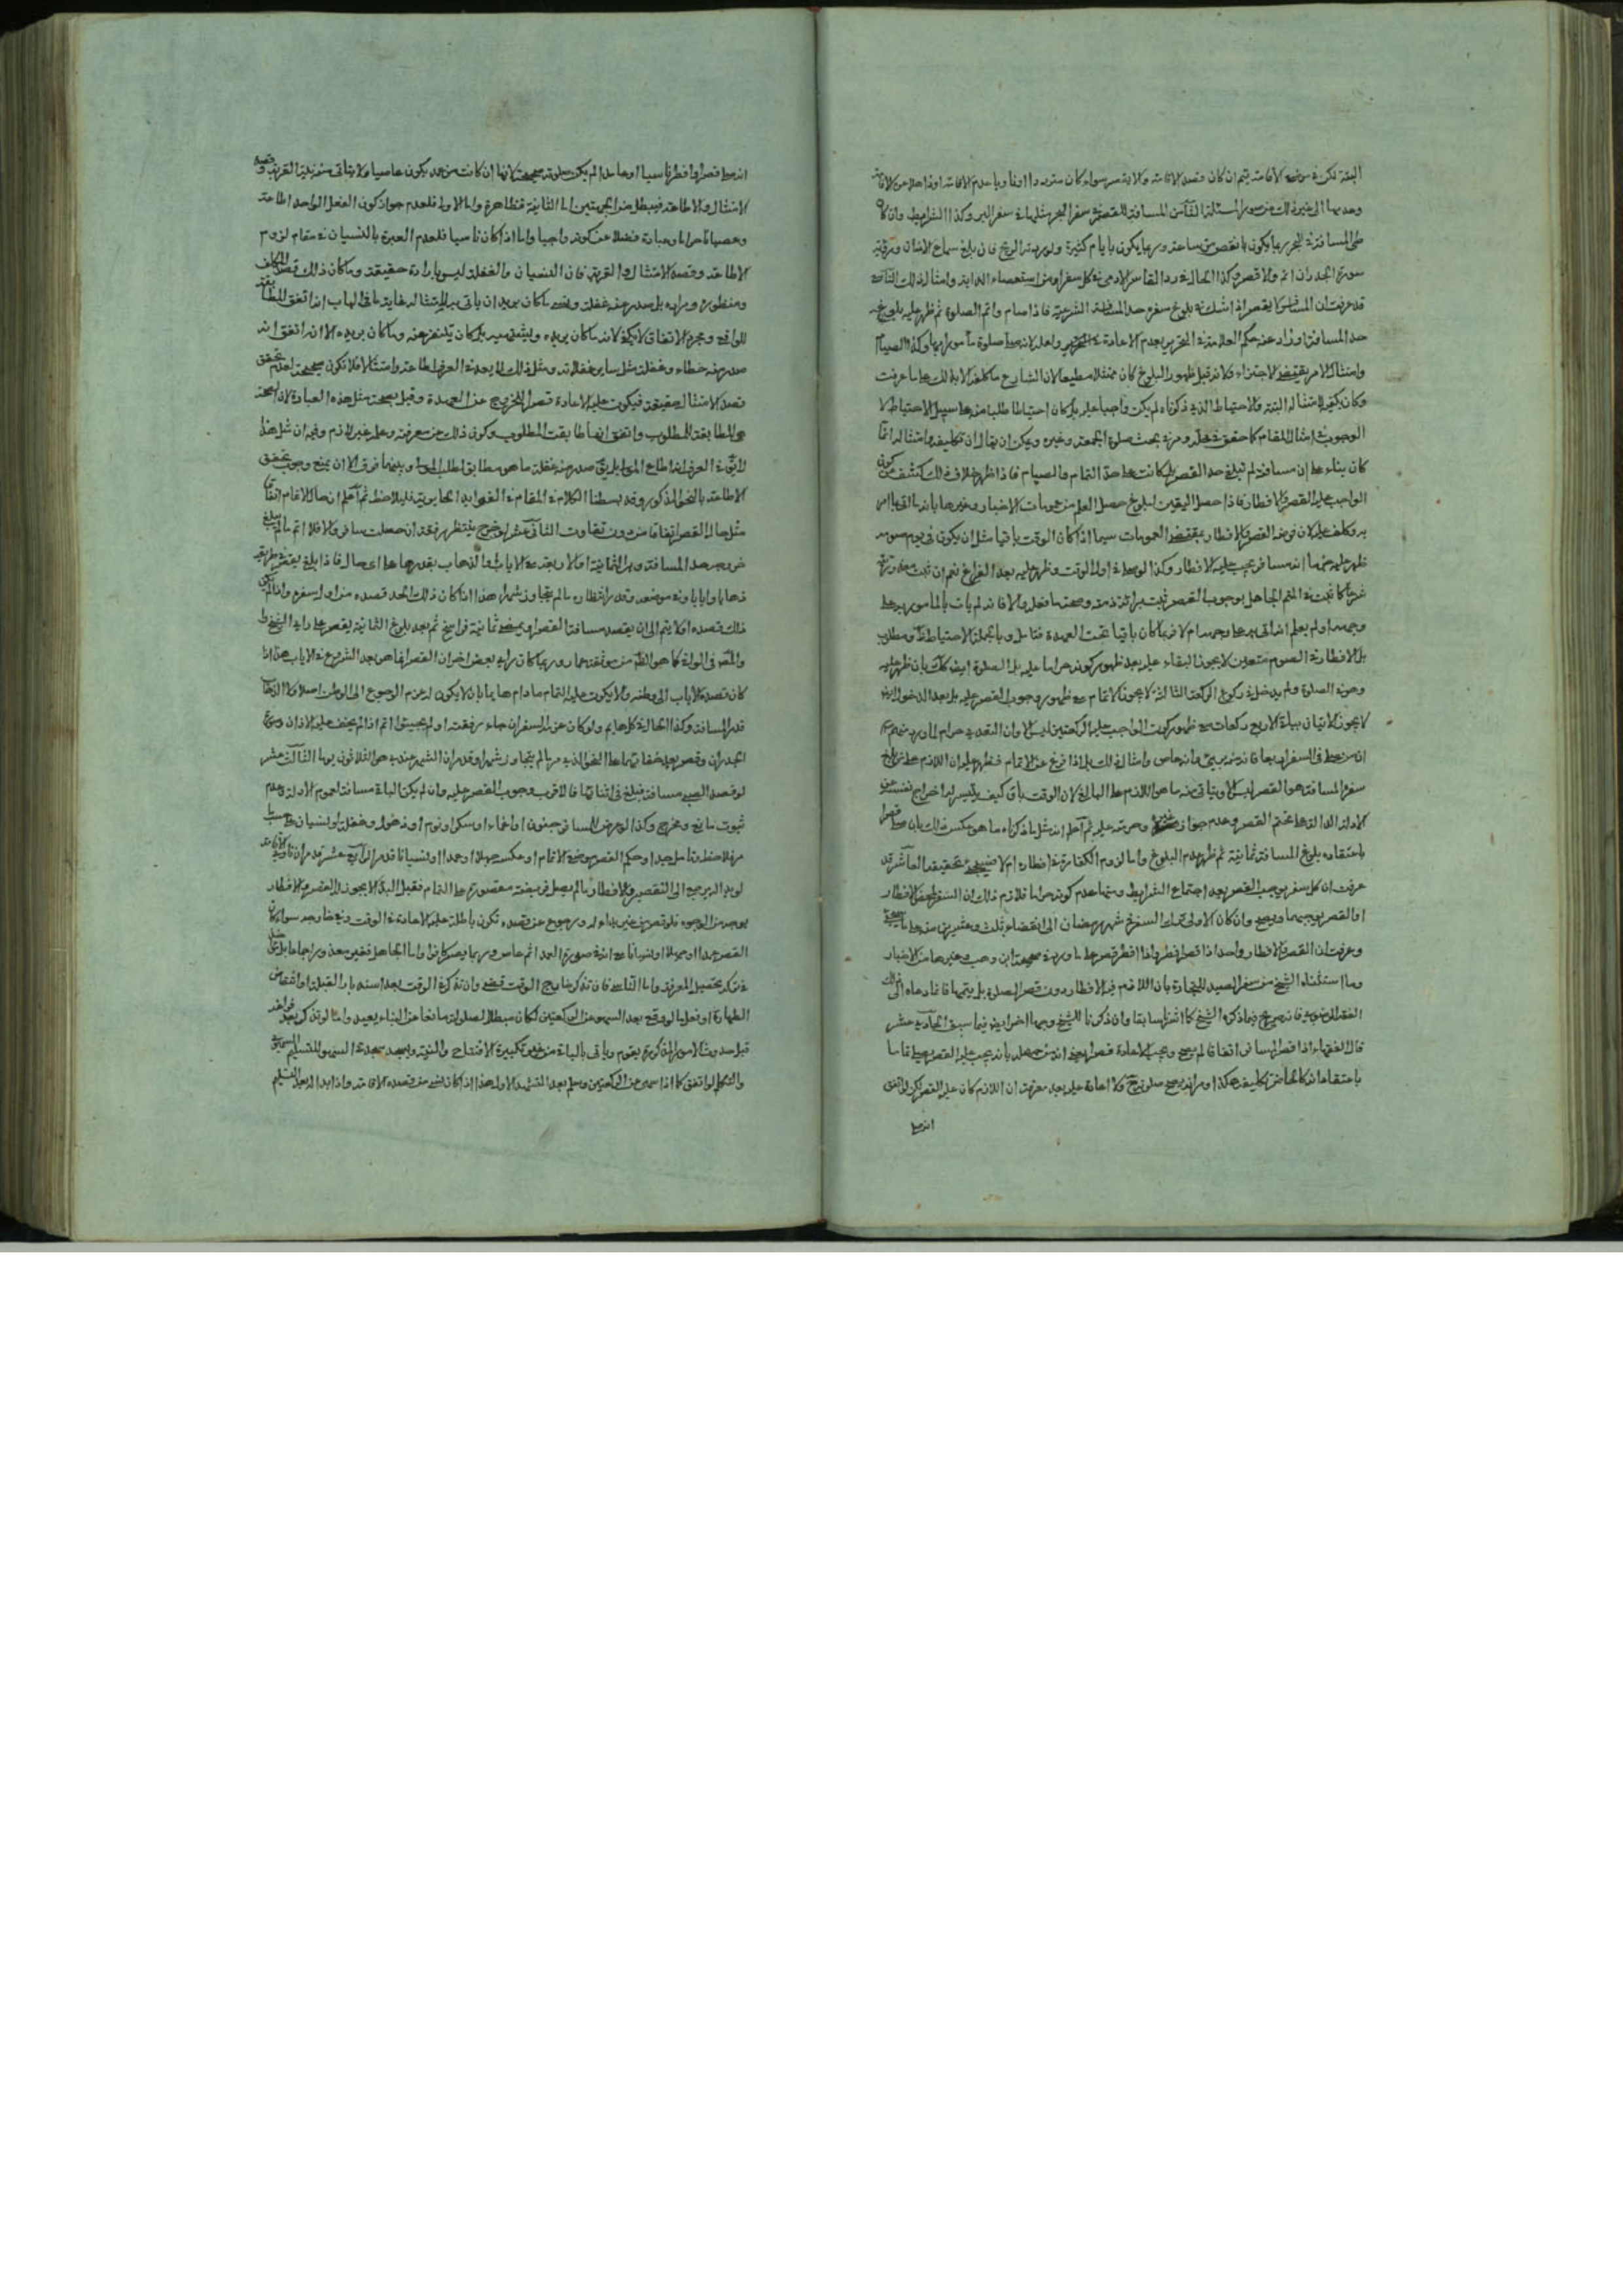 البتة لكن في موضع الاقامة يتم ان كان قصد الاقامة والا يقصر سواء كان مترددا او ناويا عدم الاقامة او ذاهلا عن الاقامة
وعدمها الى غير ذلك من صور المسئلة الثامن المسافة للقصر في سفر البحر مثلها في سفر البر وكذا الشرايط وان كان
طي المسافة في البحر ربما يكون بانقص من ساعة وربما يكون بايام كثيرة ولو ردته الريح فان بلغ سماع الاذان ورؤية
سورة الجدران اتم والا قصر وكذا الحال في رد القاسر الادمي في كل سفر او من استعصاء الدابة وامثال ذلك التاسع
قد عرفت ان المسافر لا يقصر اذا شك في بلوغ سفره حد المسافة الشرعية فاذا صام واتم الصلوة ثم ظهر عليه بلوغ
حد المسافة او زاد عنه حكم العلامة في التحرير بعدم الاعادة ولعله لانه صلى صلوة مأمورا بها وكذا الصيام
وامتثال الامر يقتضي الاجزاء ولانه قبل ظهور البلوغ كان ممتثلا مطيعا لان الشارع ما كلفه الا بذلك على ما عرفت
وكان يكفي الامتثال البتة والاحتياط الذي ذكرناه لم يكن واجبا عليه بل كان احتياطا طلبا منه على سبيل الاحتياط لا
الوجوب في امثال المقام كما حقق في محله ومر في بحث صلوة الجمعة وغيره ويمكن ان يقال ان تكليفه وامتثاله انما
كان بناء على ان مسافته لم تبلغ حد القصر بل كانت على حد التمام والصيام فاذا ظهر خلاف ذلك كشف عن كون
الواجب عليه القصر والافطار فاذا حصل اليقين ببلوغ حصل العلم من عمومات الاخبار وغيرها بانه
فرضه القصر والافطار بمقتضى العمومات سيما اذا كان الوقت باقيا مثل ان يكون في يوم صومه
ظهر عليه انه مسافر يجب عليه الافطار وكذا لو صلى في اول الوقت وظهر عليه بعد الفراغ نعم ان ثبت
شرعا كما ثبت في المتم الجاهل بوجوب القصر ثبت برائة ذمته وصحة ما فعل والا فانه لم يات بالمامور به على
وجهه او لم يعلم انه اتى به على وجهه ام لا فربما كان باقيا تحت العهدة فتامل وبالجملة الاحتياط ومطلوب
بل الافطار في الصوم متعين لا يجوز البقاء عليه بعد ظهور كونه حراما عليه بل الصلوة ايضا كك بان ظهر عليه
وهو في الصلوة ولم يدخل في ركوع الركعة الثالثة لا يجوز الاتمام مع ظهور وجوب القصر عليه بل بعد الدخول ايضا
لا يجوز الاتيان ببقية الاربع ركعات مع ظهور كون الواجب عليه الركعتين ليس الا وان التعدي حرام لما ورد منهم
ان من صلى في السفر اربعا فانه منه بريئ وانه عاص وامثال ذلك بل اذا فرغ عن الاتمام فظهر عليه ان اللازم على من بلغ
سفره المسافة هو القصر ليس الا ويتاتى منه ما هو اللازم عليه لان الوقت باق كيف يتيسر له اخراج نفسه عن
الادلة الدالة على تحتم القصر وعدم جواز غيره وحرمته عليه ثم اعلم انه مثل ما ذكرناه ما هو عكس ذلك بان صلى قصرا
باعتقاده بلوغ المسافة ثمانية ثم ظهر عدم البلوغ واما لزوم الكفارة في افطاره ام لا تحقيقه العاشر قد
عرفت ان كل سفر يوجب القصر بعد اجتماع الشرايط ومنها عدم كونه حراما فلازم ذلك ان السفر لمحض الافطار
او القصر يوجبهما ويصح وان كان الاولى ترك السفر في شهر رمضان الى انقضاء ثلث وعشرين منه
وعرفت ان القصر والافطار واحد اذا قصر افطر واذا افطر قصر على ما ورد في صحيحة ابن وهب وغيرها من الاخبار
وما استثناه الشيخ من سفر الصيد للتجارة بان اللازم فيه الافطار دون قصر الصلوة بل يتمها فادعاه الى ذلك
الفقه الرضوي فانه صريح فيما ذكره الشيخ كما اشرنا سابقا وان ذكرنا للشيخ وجها اخر ايضا فيما سبق الحادي عشر
قال الفقهاء اذا قصر المسافر اتفاقا لم يصح ويجب الاعادة قصرا يعني انه من جهله بانه يجب عليه القصر صلى تماما
باعتقاد انه كالحاضر تكليفه هكذا انه يصح صلوته ولا اعادة عليه بعد معرفته ان اللازم كان عليه القصر لكن لو اتفق
انه صلى
انه صلى قصرا وافطر ناسيا او عامدا لم يكن صلوته صحيحة لانها ان كانت من عمد يكون عاصيا ولا يتاتى منه نية القربة وقصد
الامتثال والاطاعة فيبطل من الجهتين اما الثانية فظاهرة واما الاولى فلعدم جواز كون الفعل الواحد اطاعة
وعصيانا حراما وعبادة فضلا عن كونه واجبا واما اذا كان ناسيا فلعدم العبرة بالنسيان في مقام لزوم
الاطاعة وقصد الامتثال والقربة فان النسيان والغفلة ليس بارادة حقيقة وما كان ذلك قصد المكلف
ومنظوره ومراده بل صدر عنه غفلة ولعله ما كان يريد ان ياتي به للامتثال غاية ما في الباب انه اتفق المطابقة
للواقع ومجرد الاتفاق لا يكفي لانه ما كان يريده ويشتهيه بل كان يتنفر عنه وما كان يريده الا انه اتفق انه
صدر منه خطاء وغفلة مثل سائر غفلاته ومثل ذلك لا يعد في العرف اطاعة وامتثالا فلا تكون صحيحة لعدم تحقق
قصد الامتثال حقيقة فيكون عليه الاعادة قصرا للخروج عن العهدة وقيل بصحة مثل هذه العبادة لان الصحة
هي المطابقة للمطلوب واتفق انها طابقت المطلوب وكون ذلك من معرفة وعلم غير لازم وفيه ان مثل هذا
لا يق في العرف انه اطاع المولى بل يق صدر منه غفلة ما هو مطابق لطلب المولى وبينهما فرق الا ان يمنع وجوب تحقق
الاطاعة بالنحو المذكور وقد بسطنا الكلام في المقام في الفوايد الحايرية فليلاحظ ثم اعلم ان حال الاتمام اتفاقا
مثل حال القصر اتفاقا من دون تفاوت الثاني عشر لو خرج ينتظر رفقة ان حصلت سافر والا فلا اتم ما لم يبلغ
خروجه حد المسافة وهي الثمانية او الاربعة مع الاياب والذهاب بقدرها على اي حال فاذا بلغ يقصر بطريقه
ذهابا وايابا وفي موضعه وقدر انتظاره ما لم يتجاوز شهرا هذا اذا كان ذلك الحد قصده من اول سفره واذا لم يكن
ذلك قصده اولا يتم الى ان يقصد مسافة القصر او يمضي ثمانية فراسخ ثم بعد بلوغ الثمانية يقصر على راي الشيخ
والمص في الوافي كما هو الظ من موثقة عمار وربما كان راي بعض اخر ان القصر انما هو بعد الشروع في الاياب هذا اذا
كان قصده الاياب الى وطنه والا يكون عليه التمام ما دام هايما بان لا يكون له عزم الرجوع الى الوطن اصلا ولا الذهاب
قدر المسافة وكذا الحال في كل هايم ولو كان عزمه السفر ان جاء رفقته او لم يجيئوا اتم اذا لم يخف عليه الاذان وسور
الجدران وقصر بعد خفائهما على النحو الذي مر ما لم يتجاوز شهرا وقد مر ان الشهر عنده هو الثلاثون يوما الثالث عشر
لو قصد الصبي مسافة فبلغ في اثنائها فالاقرب وجوب القصر عليه وان لم يكن الباقي مسافة لعموم الادلة وعدم
ثبوت مانع ومخرج وكذا لو عرض للمسافر جنون او اغماء او سكر او نوم او ذهول وغفلة او نسيان على حسب ما
مر فلاحظ وتامل جيدا وحكم القصر موضع الاتمام او عكسه جهلا او عمدا او نسيانا قد مر الرابع عشر قد مر ان ناوي الاقامة
لو بدا له يرجع الى التقصير والافطار ما لم يصل فريضة مقصورة على التمام فقبل البدا لا يجوز له القصر والافطار
بوجه من الوجوه فلو قصر من غير بداء له ورجوع عن قصده تكون باطلة عليه الاعادة في الوقت وفي خارجه سواء كان
القصر عمدا او جهلا او نسيانا مع انه في صورة العمد اثم عاص وربما يصير كافرا واما الجاهل فغير معذور اجماعا بل
تحصيل المعرفة واما الناسي فان تذكر خارج الوقت قضى وان تذكر في الوقت بعد استدبار القبلة او انتقاض
الطهارة او فعل ما لو وقع بعد السهو عن الركعتين لكان مبطلا لصلوته مانعا من البناء يعيد واما لو تذكر بعد فراغه
قبل حدوث الامور المذكورة يقوم وياتي بالباقي من غير تكبيرة الافتتاح والنية ويسجد سجدتي السهو للتسليم السهوي
والتكلم لو اتفق كما اذا سهى عن الركعتين وسلم بعد التشهد الاول هذا اذا كان لم ينس قصده الاقامة واذا بدا له بعد التسليم